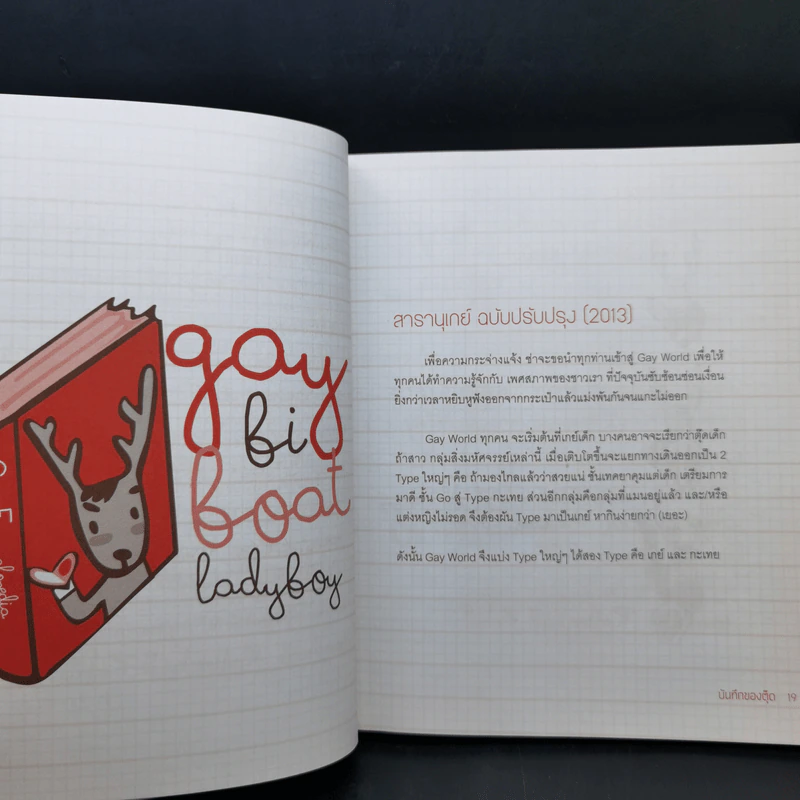 gay
bi
boat
ladyboy
สารานุเกย์ ฉบับปรับปรุง (2013)
เพื่อความกระจ่างแจ้ง ช่าจะขอนำทุกท่านเข้าสู่ Gay World เพื่อให้
ทุกคนได้ทำความรู้จักกับ เพศสภาพของชาวเรา ที่ปัจจุบันซับซ้อนซ่อนเงื่อน
ยิ่งกว่าเวลาหยิบหูฟังออกจากกระเป๋าแล้วแม่งพันกันจนแกะไม่ออก
Gay World ทุกคน จะเริ่มต้นที่เกย์เด็ก บางคนอาจจะเรียกว่าตุ๊ดเด็ก
ถ้าสาว กลุ่มสิ่งมหัศจรรย์เหล่านี้ เมื่อเติบโตขึ้นจะแยกทางเดินออกเป็น 2
Type ใหญ่ๆ คือ ถ้ามองไกลแล้วว่าสวยแน่ ชั้นเทคยาคุมแต่เด็ก เตรียมการ
มาดี ชั้น Go สู่ Type กะเทย ส่วนอีกกลุ่มคือกลุ่มที่แมนอยู่แล้ว และ/หรือ
แต่งหญิงไม่รอด จึงต้องผัน Type มาเป็นเกย์ หากินง่ายกว่า (เยอะ)
ดังนั้น Gay World จึงแบ่ง Type ใหญ่ๆ ได้สอง Type คือ เกย์ และ กะเทย
บันทึกของตุ๊ด 19